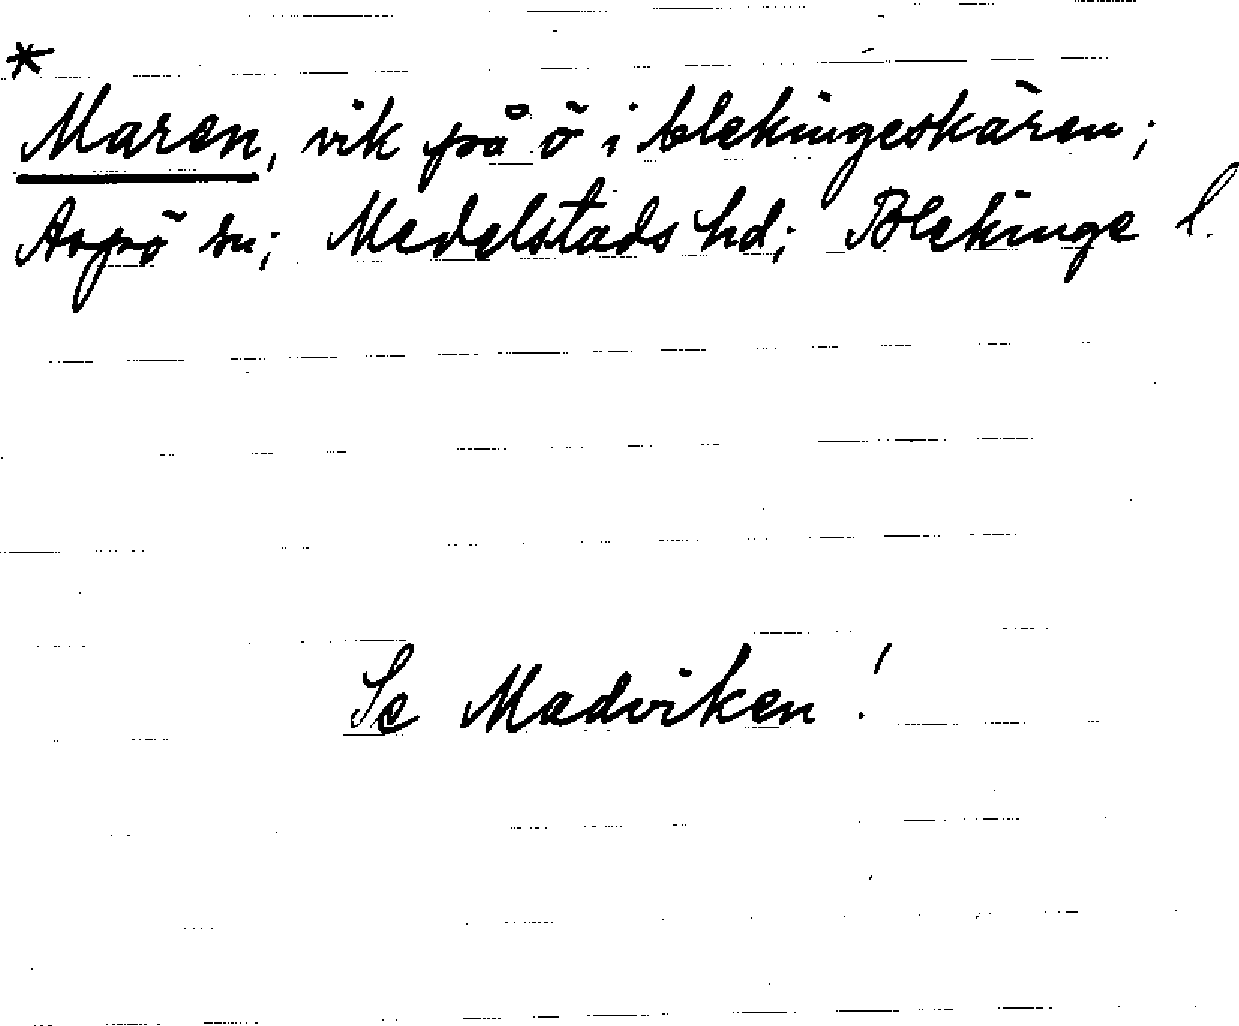 *
Maren, vik på ö i blekingeskären;
Aspö sn; Medelstads hd; Blekinge l.
Se Madviken!